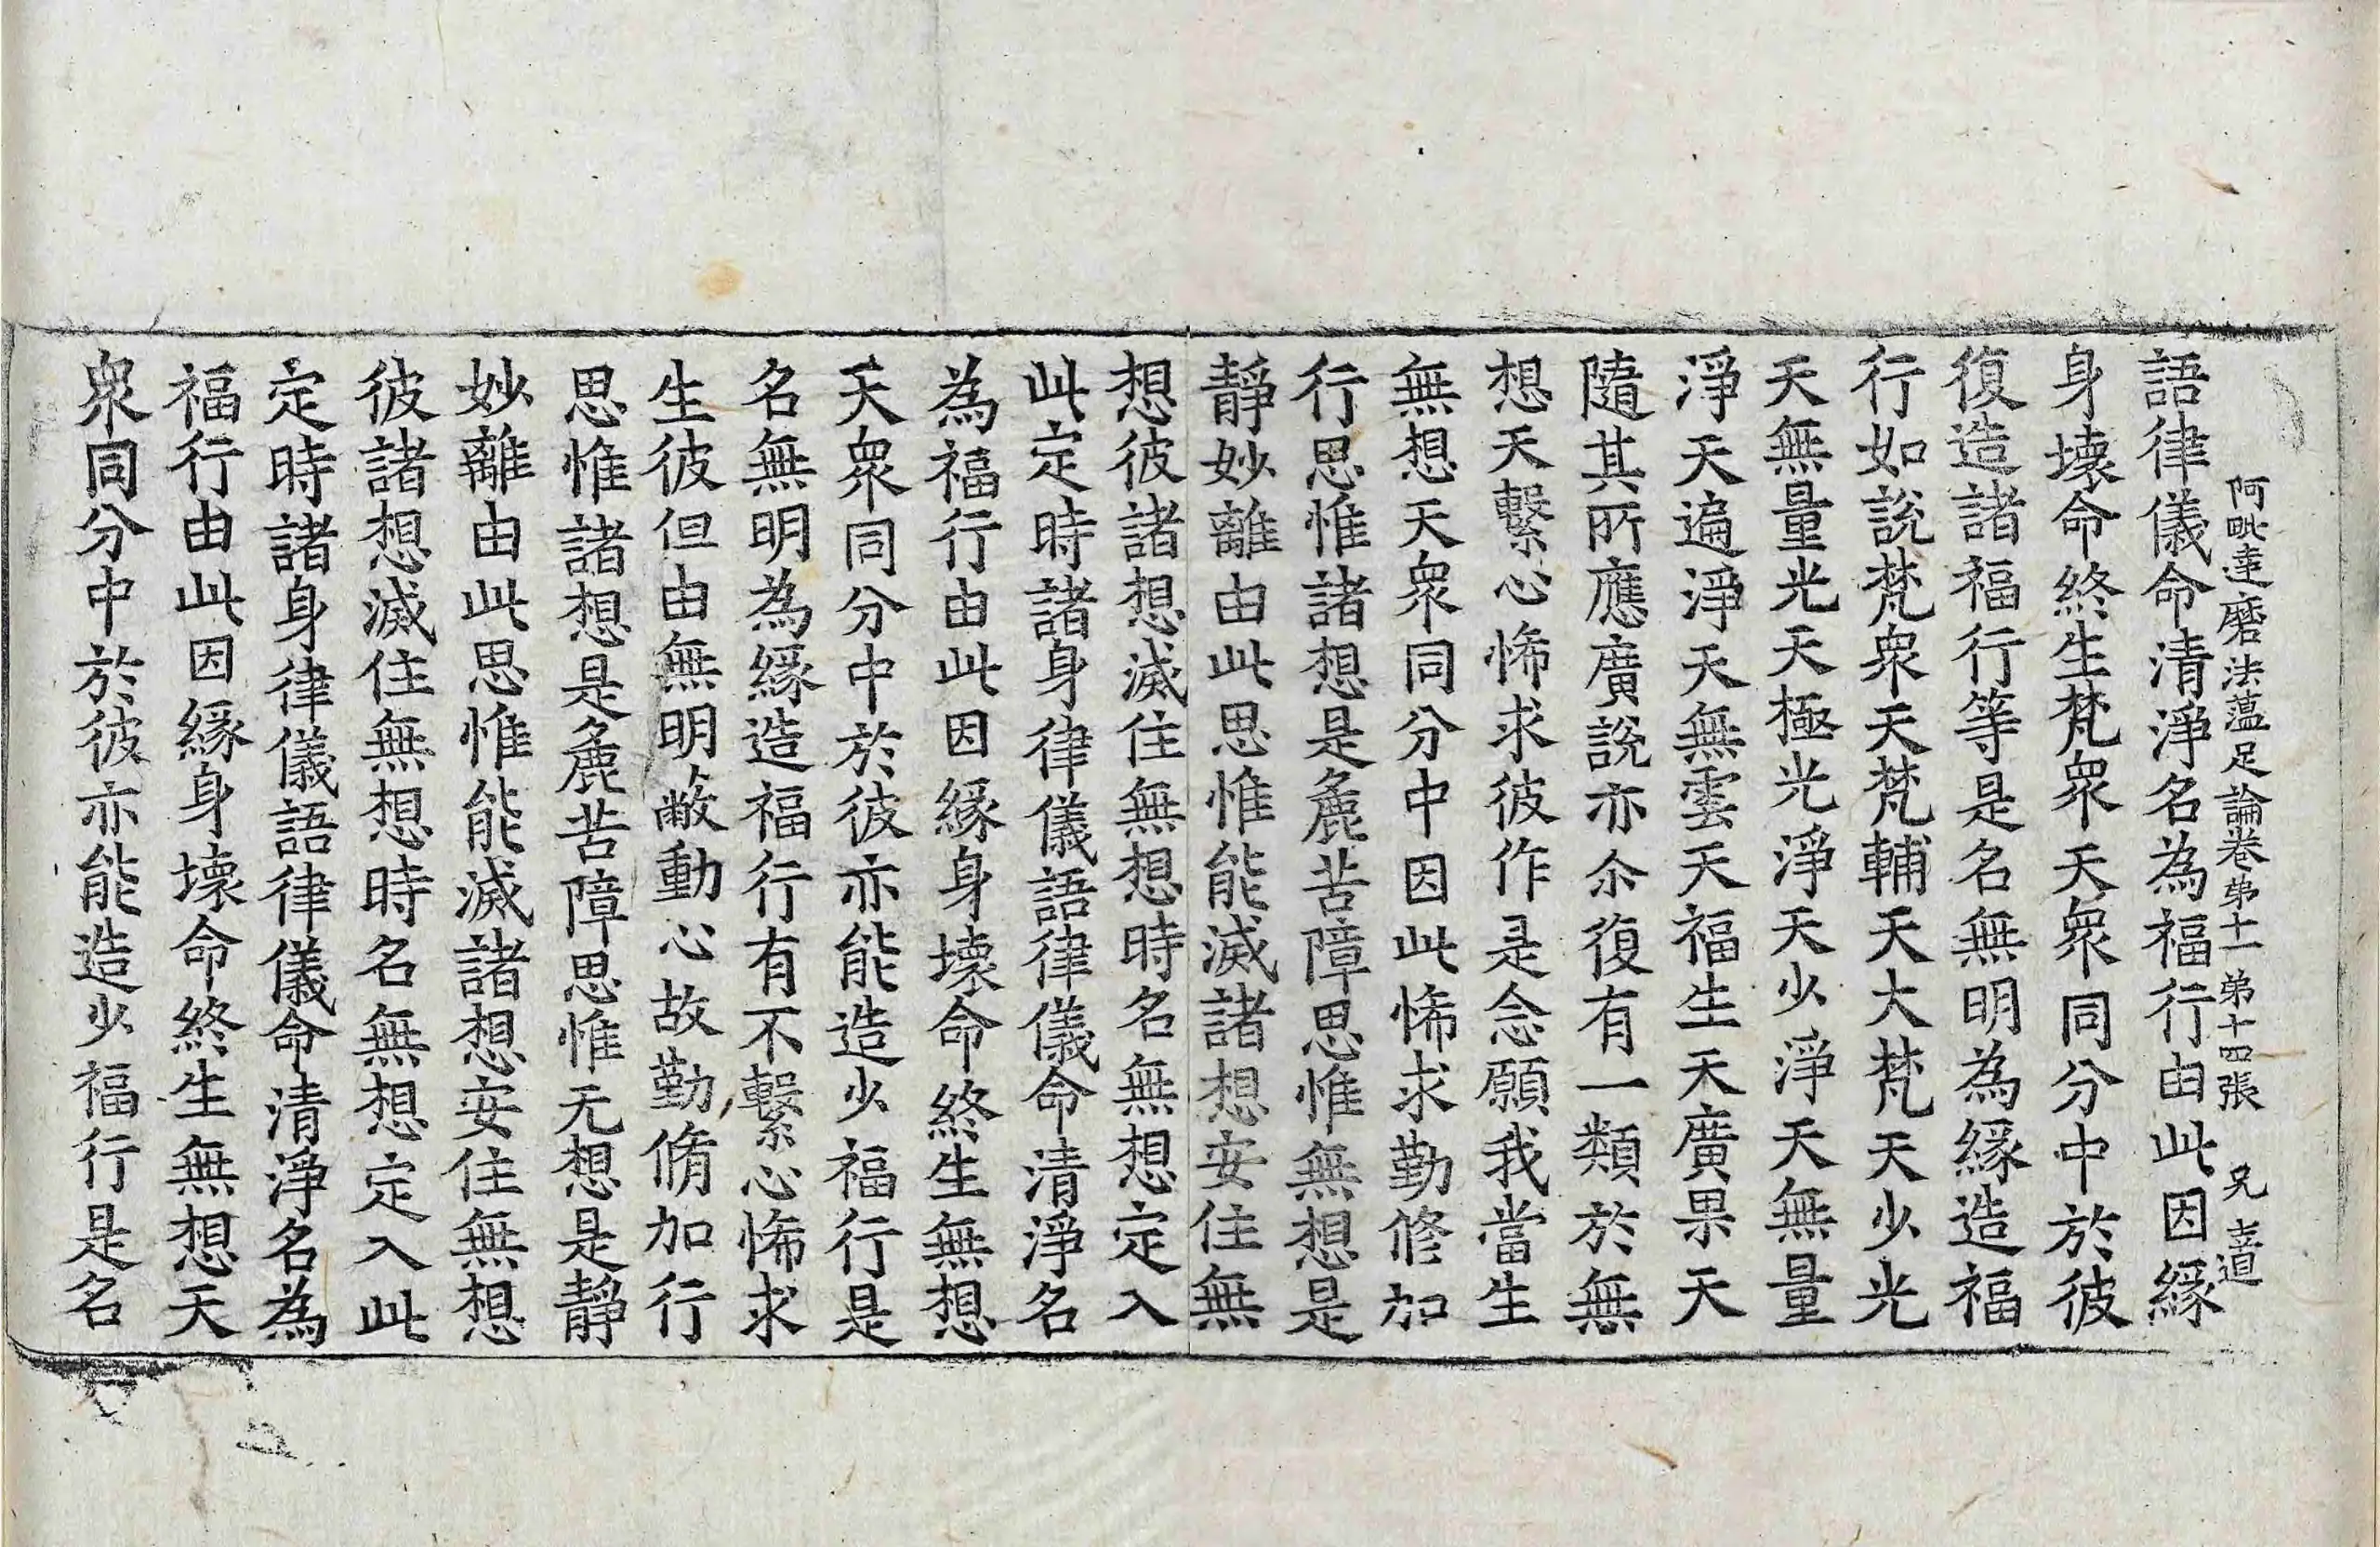 阿毗達磨法蘊足論卷第十一 第十四張 兄
語律儀命清淨名為福行由此因緣
身壞命終生梵衆天衆同分中於彼
復造諸福行等是名無明為緣造福
行如說梵衆天梵輔天大梵天少光
天無量光天極光淨天少淨天無量
淨天遍淨天無雲天福生天廣果天
隨其所應廣說亦尒復有一類於無
想天繫心悕求彼作是念願我當生
無想天衆同分中因此悕求勤修加
行思惟諸想是麁苦障思惟無想是
靜妙離由此思惟能滅諸想安住無
想彼諸想滅住無想時名無想定入
此定時諸身律儀語律儀命清淨名
為福行由此因緣身壞命終生無想
天衆同分中於彼亦能造少福行是
名無明為緣造福行有不繫心悕求
生彼但由無明蔽動心故勤脩加行
思惟諸想是麁苦障思惟无想是靜
妙離由此思惟能滅諸想安住無想
彼諸想滅住無想時名無想定入此
定時諸身律儀語律儀命清淨名為
福行由此因緣身壞命終生無想天
衆同分中於彼亦能造少福行是名